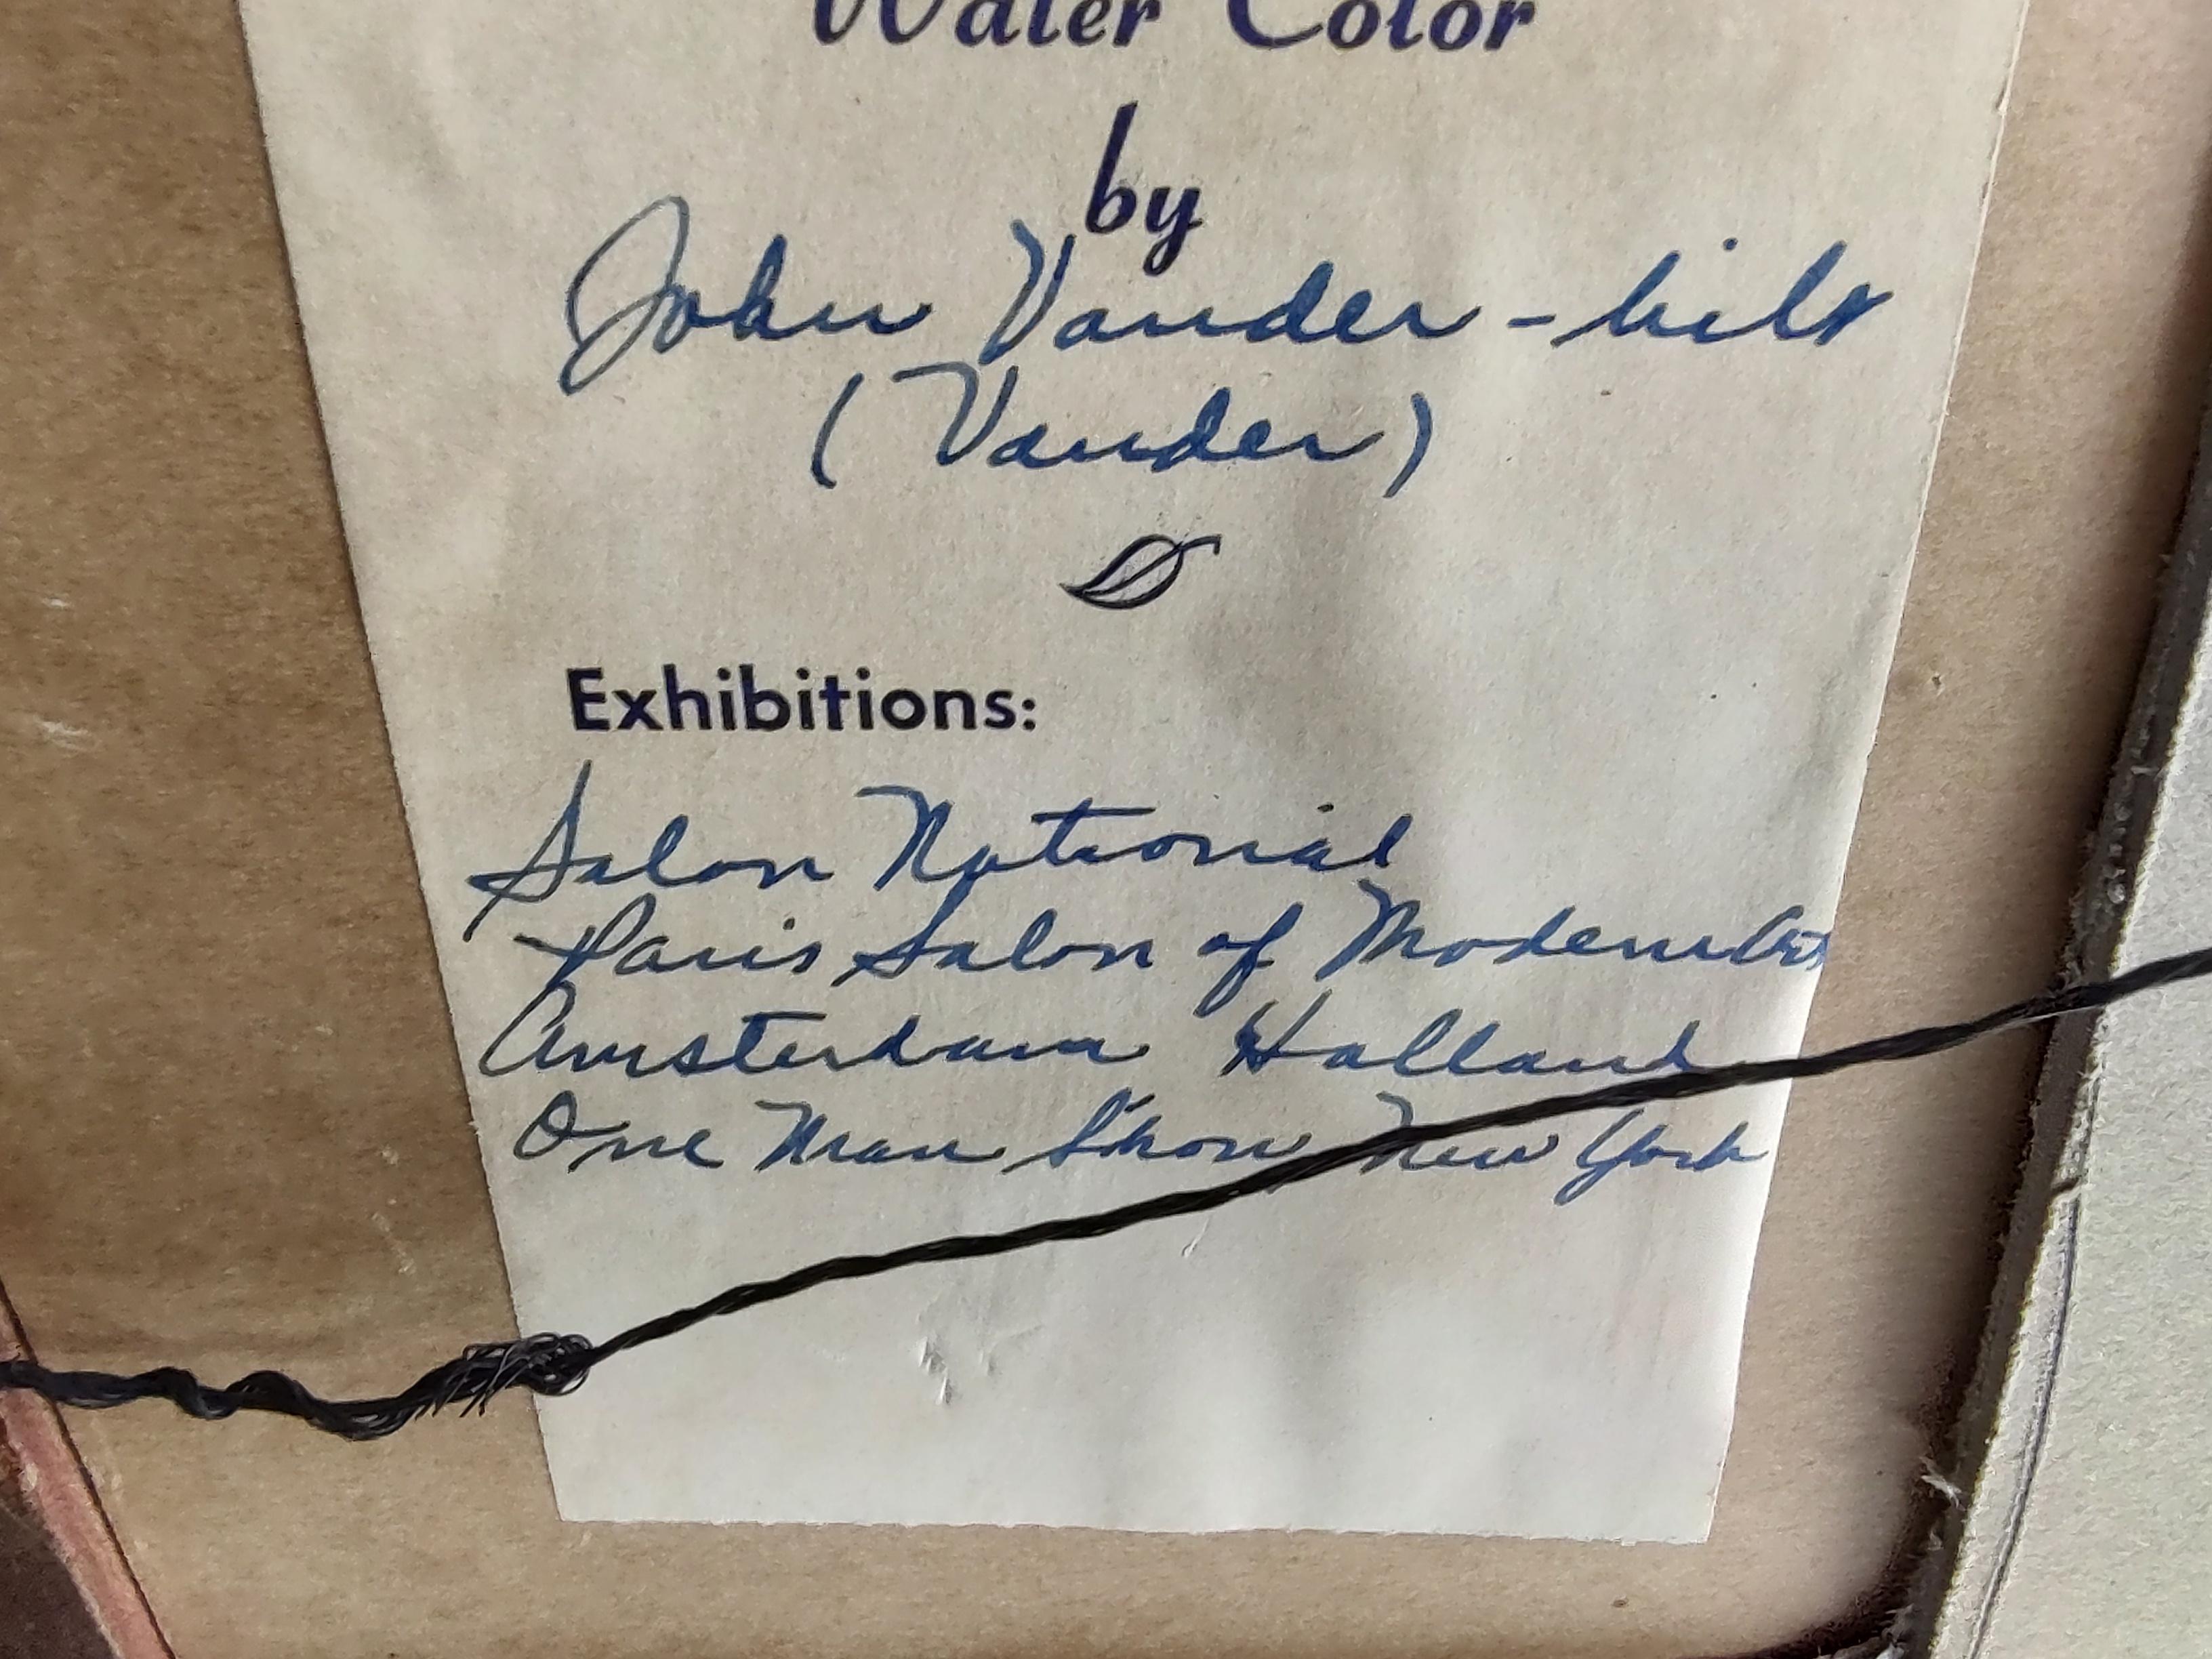 Water Color
by
John Vander-bilt
(Vander)
Exhibitions:
Salon National
Paris Salon of Modern Art
Amsterdam Holland
One Man Show New York